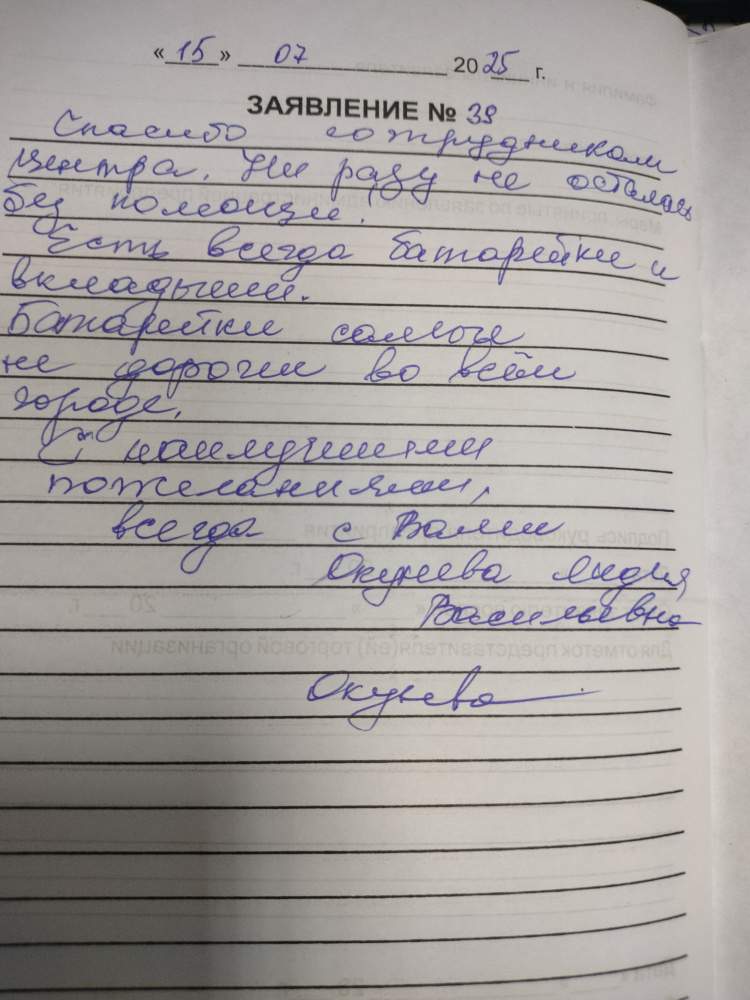 « 15 » 07 2025 г.
ЗАЯВЛЕНИЕ № 39
Спасибо сотрудникам
центра. Ни разу не осталась
без помощи.
Есть всегда батарейки и
вкладыши.
Батарейки самые
не дороги во всём
городе.
С наилучшими
пожеланиями,
всегда с Вами
Окунева Лидия
Васильевна
Окунева